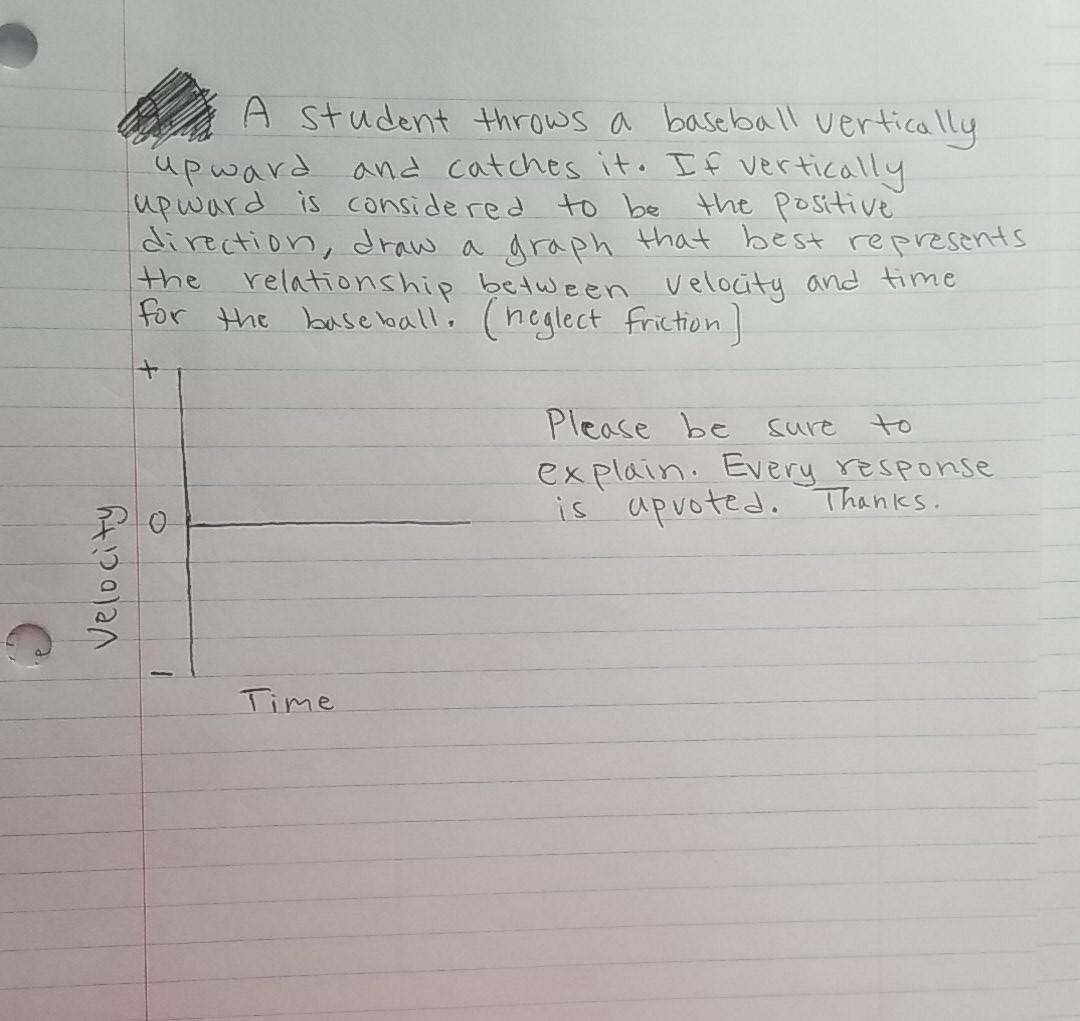 A student throws a baseball vertically
upward and catches it. If vertically
upward is considered to be the positive
direction, draw a graph that best represents
the relationship between velocity and time
for the baseball. (neglect friction]
+
Please be sure to
explain. Every response
is upvoted. Thanks.
0
Velocity
-
Time